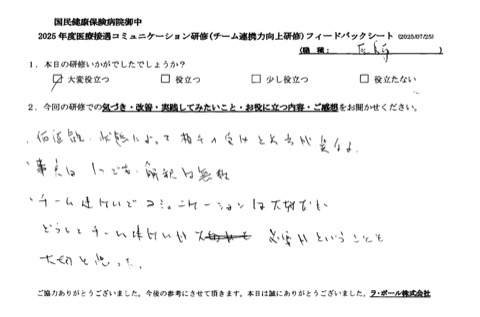 国民健康保険病院御中
2025年度医療接遇コミュニケーション研修(チーム連携力向上研修)フィードバックシート (2025/07/25)
(職種: 医師)
1．本日の研修いかがでしたでしょうか?
☑ 大変役立つ □ 役立つ □ 少し役立つ □ 役立たない
2．今回の研修での気づき・改善・実践してみたいこと・お役に立つ内容・ご感想をお聞かせください。
・価値観・状態によって相手の受けとめ方が異なる
・事実は1つでも解釈は無数
・チーム連けいでコミュニケーションは大切だが
どうしてチーム連けいが 必要かということも
大切と思った。
ご協力ありがとうございました。今後の参考にさせて頂きます。本日は誠にありがとうございました。ラ・ポール株式会社